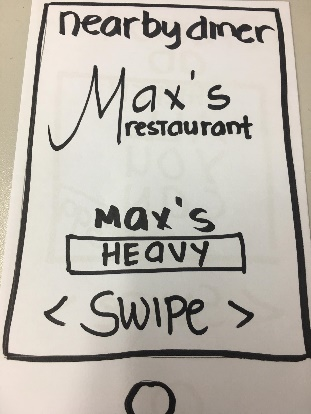 nearby diner
Max's
restaurant
Max's
HEAVY
< SWIPE >